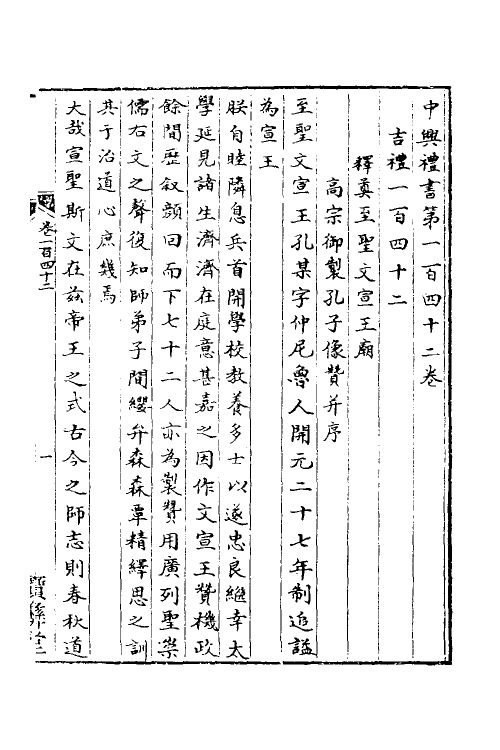 中興禮書第一百四十二卷
吉禮一百四十二
釋奠至聖文宣王廟
高宗御製孔子像贊并序
至聖文宣王孔某字仲尼魯人開元二十七年制追謚
為宣王
朕自睦隣息兵首開學校教養多士以遂忠良繼幸太
學延見諸生濟濟在庭意甚嘉之因作文宣王贊機政
餘間歷叙顏回而下七十二人亦為製贊用廣列聖崇
儒右文之聲復知師弟子間纓弁森森覃精繹思之訓
其于治道心庶幾焉
大哉宣聖斯文在茲帝王之式古今之師志則春秋道
卷一百四十二
一